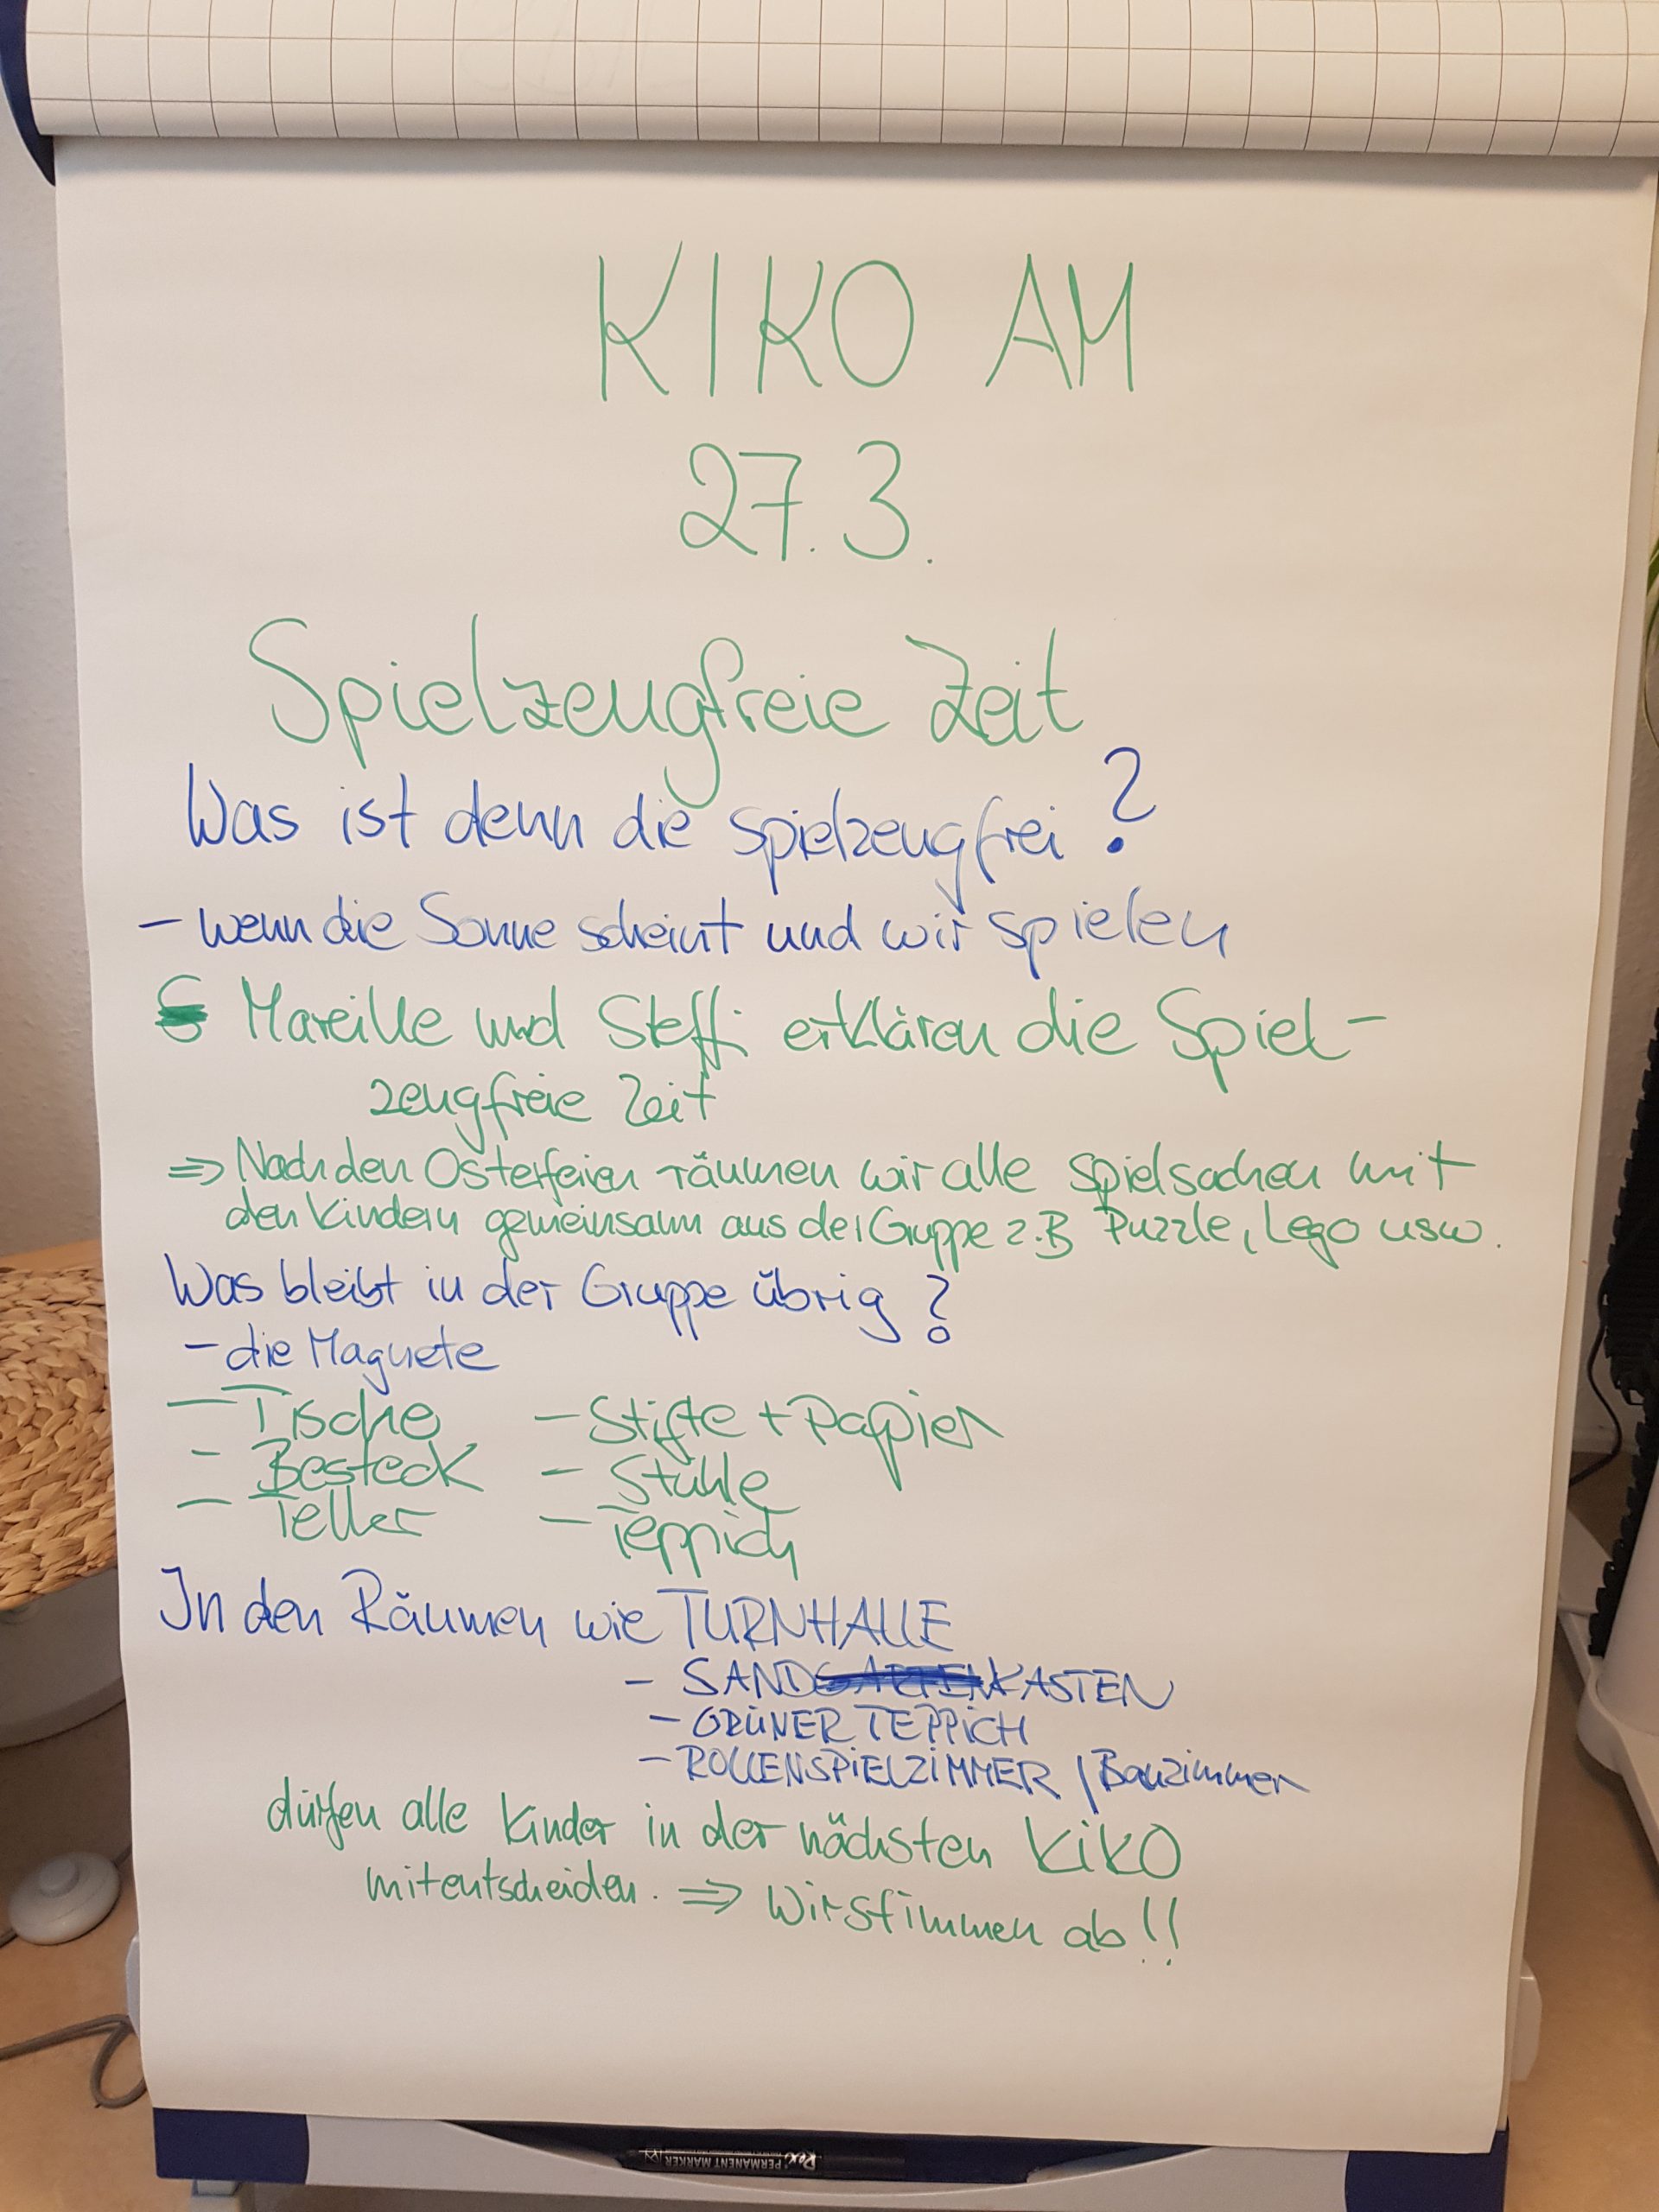 KIKO AM
27.3.
Spielzeugfreie Zeit
Was ist denn die spielzeugfrei?
- wenn die Sonne scheint und wir spielen
Mareille und Steffi erklären die Spiel-
zeugfreie Zeit
⇒ Nach den Osterfeien räumen wir alle Spielsachen mit
den Kindern gemeinsam aus der Gruppe z.B Puzzle, Lego usw.
Was bleibt in der Gruppe übrig?
- die Magnete
- Tische - Stifte + Papier
- Besteck - Stühle
- Teller - Teppich
In den Räumen wie TURNHALLE
- SANDKASTEN
- GRÜNER TEPPICH
- ROLLENSPIELZIMMER / Bauzimmer
dürfen alle Kinder in der nächsten KiKO
mitentscheiden. ⇒ Wir stimmen ab!!
Rexi PERMANENT MARKER